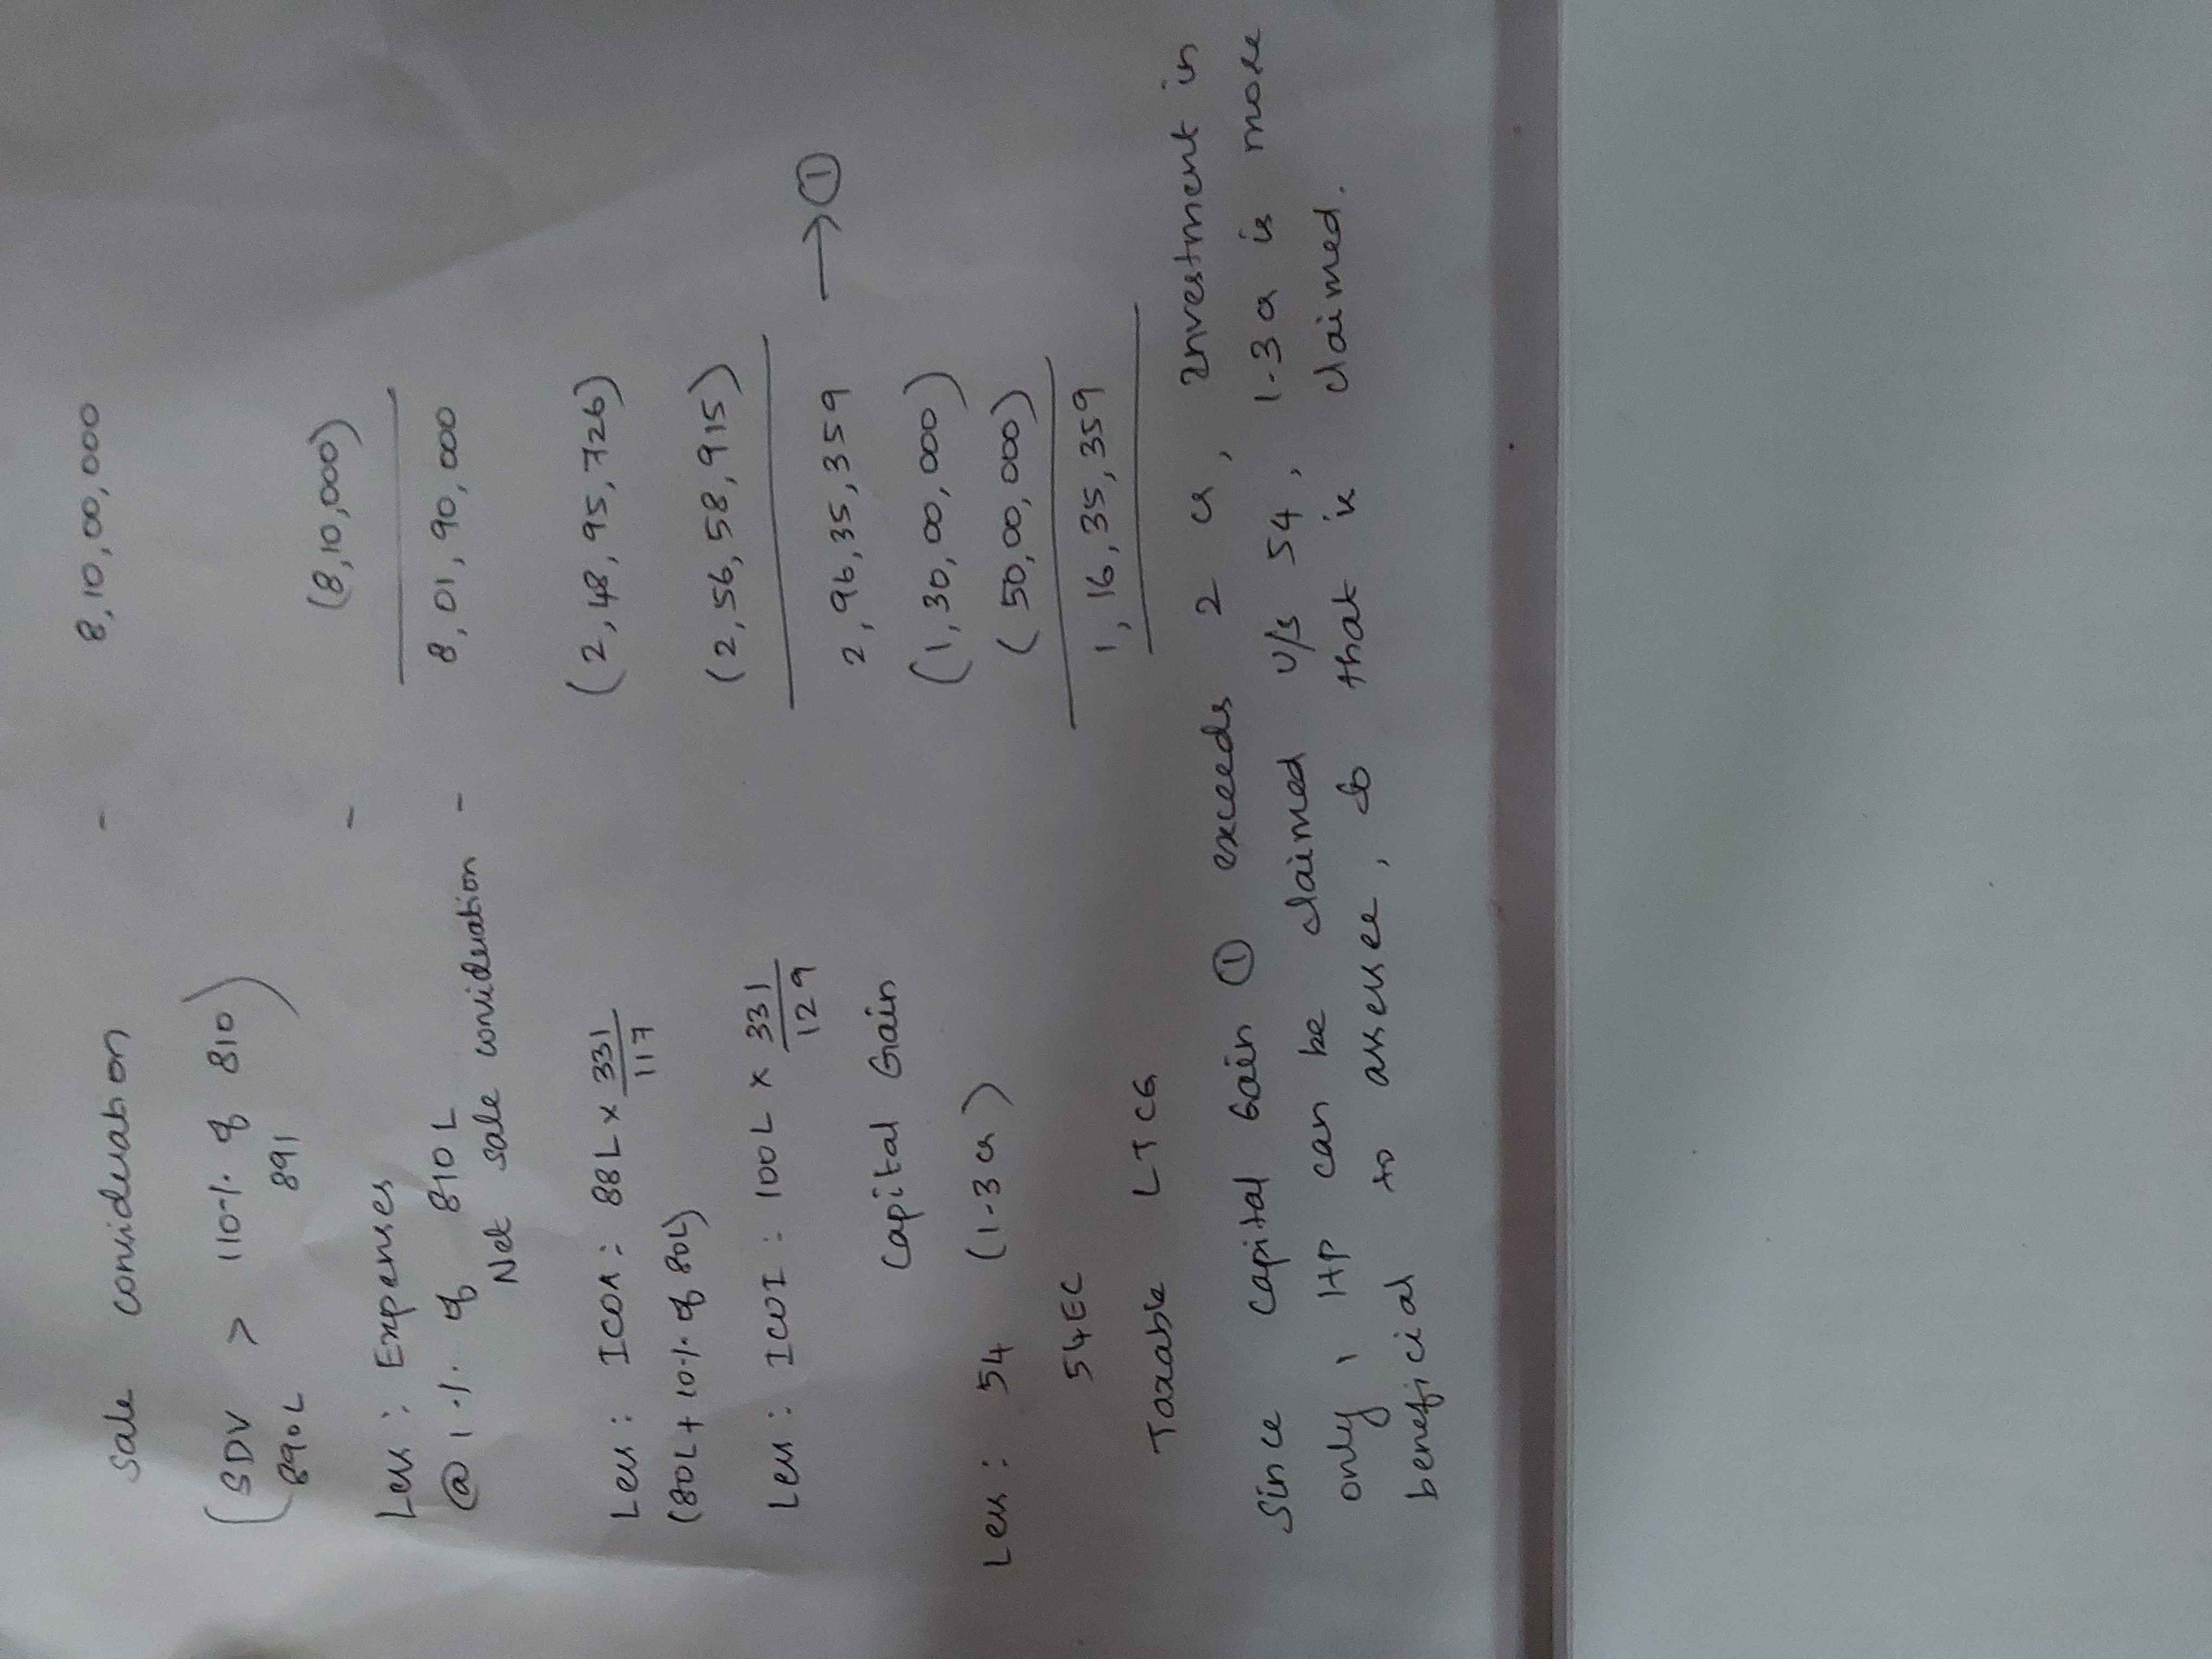 Sale consideration - 8,10,00,000
(SDV > 110% of 810)
890L 891
Less: Expenses - (8,10,000)
@ 1% of 810L
Net sale consideration - 8,01,90,000
Less: ICOA: 88L x 331/117 (2,48,95,726)
(80L + 10% of 80L)
Less: ICOI: 100L x 331/129 (2,56,58,915)
Capital Gain 2,96,35,359 → ①
Less: 54 (1.3 cr) (1,30,00,000)
54EC (50,00,000)
Taxable LTCG 1,16,35,359
Since Capital Gain ① exceeds 2 cr, investment in
only 1 HP can be claimed u/s 54, 1.3 cr is more
beneficial to assessee, so that is claimed.